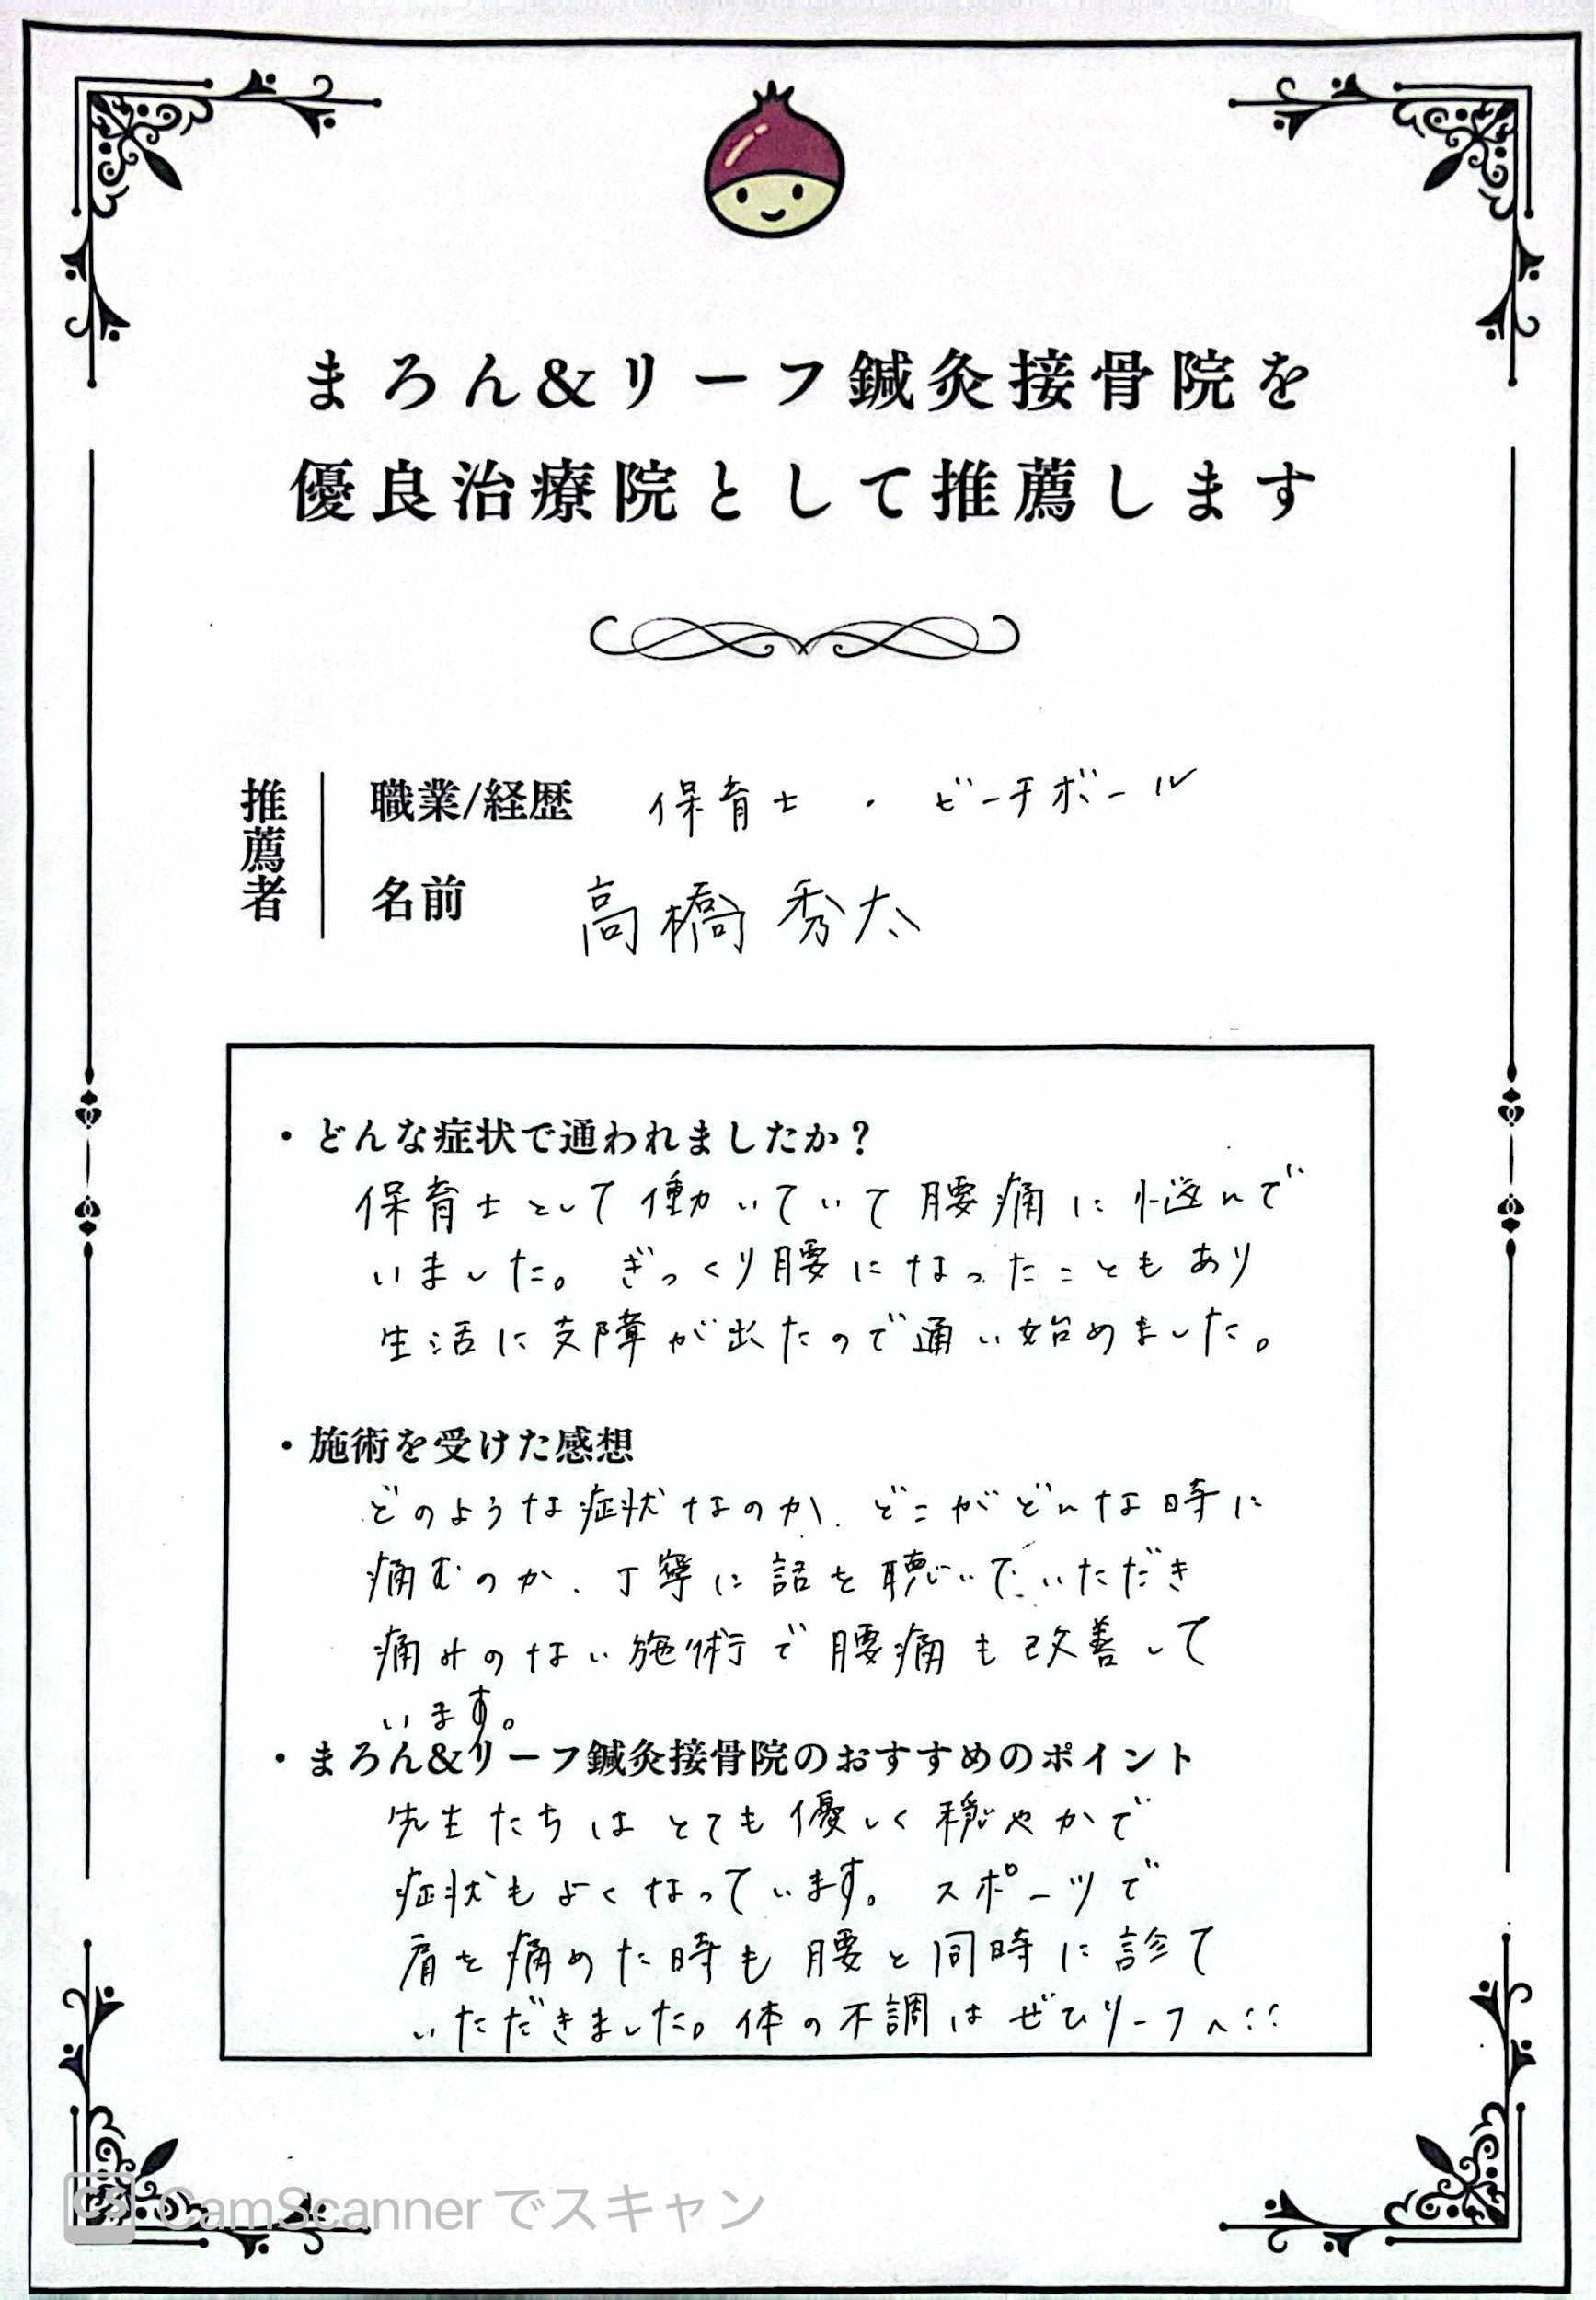 まろん&リーフ鍼灸接骨院を
優良治療院として推薦します
推薦者
職業/経歴 保育士 ・ ビーチボール
名前 高橋 秀太
・どんな症状で通われましたか?
保育士として働いていて腰痛に悩んで
いました。ぎっくり腰になったこともあり
生活に支障が出たので通い始めました。
・施術を受けた感想
どのような症状なのか、どこがどんな時に
痛むのか、丁寧に話を聴いていただき
痛みのない施術で腰痛も改善して
います。
・まろん&リーフ鍼灸接骨院のおすすめのポイント
先生たちはとても優しく穏やかで
症状もよくなっています。スポーツで
肩を痛めた時も腰と同時に診て
いただきました。体の不調はぜひリーフへ!!
CS CamScannerでスキャン